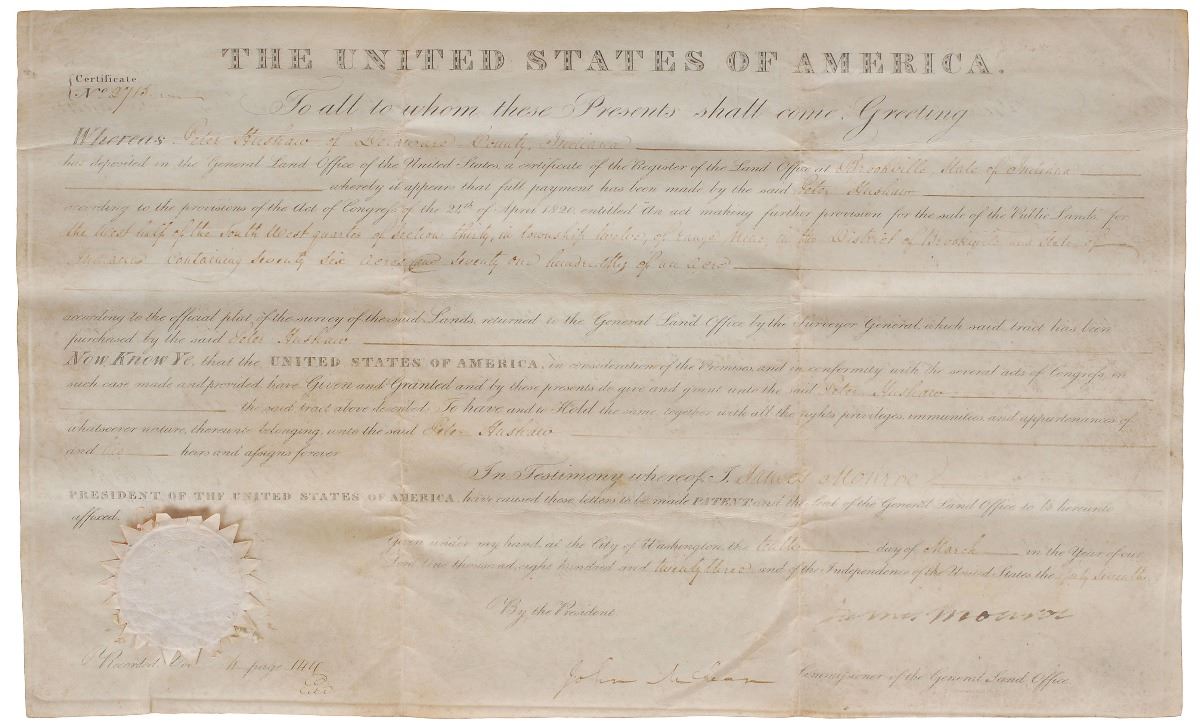 THE UNITED STATES OF AMERICA.
Certificate
No. 2715
To all to whom these Presents shall come, Greeting
Whereas Peter Hushaw of Delaware County, Indiana
has deposited in the General Land Office of the United States, a certificate of the Register of the Land Office at Brookville, State of Indiana
whereby it appears that full payment has been made by the said Peter Hushaw
according to the provisions of the Act of Congress of the 24th of April 1820, entitled "An act making further provision for the sale of the Public Lands, for
the West half of the South West quarter of section thirty, in township twelve, of range Nine, in the District of Brookville and State of
Indiana Containing Seventy Six Acres and Seventy one hundredths of an Acre
according to the official plat of the survey of the said Lands, returned to the General Land Office by the Surveyor General, which said tract has been
purchased by the said Peter Hushaw
Now Know Ye, that the UNITED STATES OF AMERICA, in consideration of the Premises, and in conformity with the several acts of Congress, in
such case made and provided, have Given and Granted and by these presents do give and grant unto the said Peter Hushaw
the said tract above described: To have and to Hold the same, together with all the rights, privileges, immunities and appurtenances of
whatsoever nature, thereunto belonging, unto the said Peter Hushaw
and his heirs and assigns forever
In Testimony whereof, I, James Monroe
PRESIDENT OF THE UNITED STATES OF AMERICA, have caused these letters to be made PATENT, and the Seal of the General Land Office to be hereunto
affixed.
Given under my hand, at the City of Washington, the day of March in the Year of our
Lord one thousand eight hundred and twenty three and of the Independence of the United States the forty Seventh
By the President
James Monroe
Recorded Vol 4 page 144
John McLean Commissioner of the General Land Office